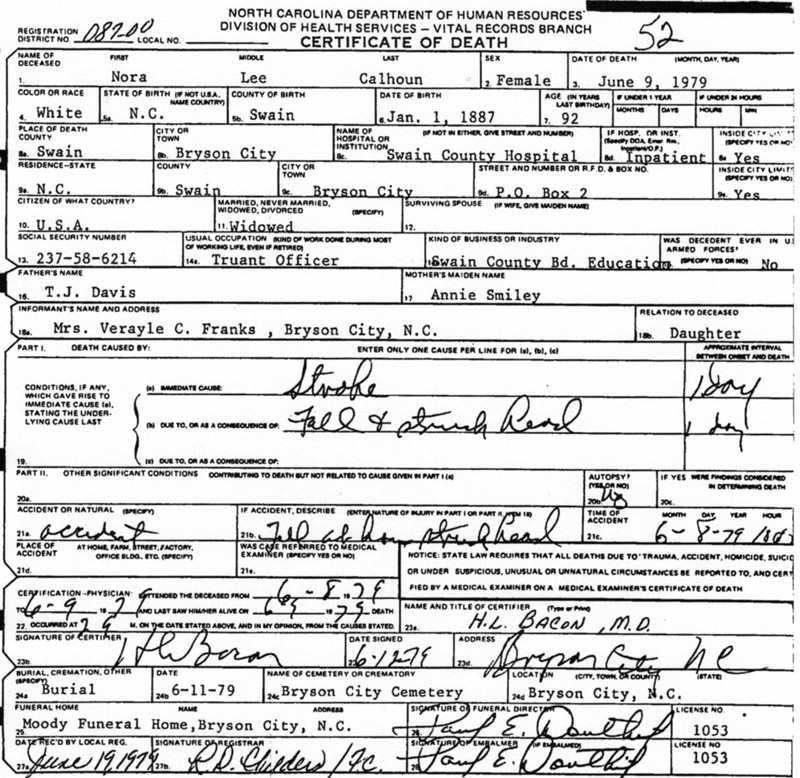 NORTH CAROLINA DEPARTMENT OF HUMAN RESOURCES
DIVISION OF HEALTH SERVICES – VITAL RECORDS BRANCH
CERTIFICATE OF DEATH
52
REGISTRATION DISTRICT NO. 08200 LOCAL NO.
NAME OF DECEASED FIRST MIDDLE LAST SEX DATE OF DEATH (MONTH, DAY, YEAR)
1. Nora Lee Calhoun 2. Female 3. June 9, 1979
COLOR OR RACE STATE OF BIRTH (IF NOT U.S.A., NAME COUNTRY) COUNTY OF BIRTH DATE OF BIRTH AGE (IN YEARS LAST BIRTHDAY) IF UNDER 1 YEAR IF UNDER 24 HOURS
MONTHS DAYS HOURS MIN
4. White 5a. N.C. 5b. Swain 6. Jan. 1, 1887 7. 92
PLACE OF DEATH COUNTY CITY OR TOWN NAME OF HOSPITAL OR INSTITUTION (IF NOT IN EITHER, GIVE STREET AND NUMBER) IF HOSP. OR INST. (Specify DOA, Emer. Rm., Inpatient/O.P.) INSIDE CITY LIMITS (SPECIFY YES OR NO)
8a. Swain 8b. Bryson City 8c. Swain County Hospital 8d. Inpatient 8e Yes
RESIDENCE–STATE COUNTY CITY OR TOWN STREET AND NUMBER OR R.F.D. & BOX NO. INSIDE CITY LIMITS (SPECIFY YES OR NO)
9a. N.C. 9b. Swain 9c. Bryson City 9d. P.O. Box 2 9e. Yes
CITIZEN OF WHAT COUNTRY? MARRIED, NEVER MARRIED, WIDOWED, DIVORCED (SPECIFY) SURVIVING SPOUSE (IF WIFE, GIVE MAIDEN NAME)
10. U.S.A. 11. Widowed 12.
SOCIAL SECURITY NUMBER USUAL OCCUPATION (KIND OF WORK DONE DURING MOST OF WORKING LIFE, EVEN IF RETIRED) KIND OF BUSINESS OR INDUSTRY WAS DECEDENT EVER IN U.S. ARMED FORCES? (SPECIFY YES OR NO)
13. 237-58-6214 14a. Truant Officer Swain County Bd. Education No
FATHER'S NAME MOTHER'S MAIDEN NAME
16. T.J. Davis 17 Annie Smiley
INFORMANT'S NAME AND ADDRESS RELATION TO DECEASED
18a. Mrs. Verayle C. Franks , Bryson City, N.C. 18b. Daughter
PART I. DEATH CAUSED BY: ENTER ONLY ONE CAUSE PER LINE FOR (a), (b), (c) APPROXIMATE INTERVAL BETWEEN ONSET AND DEATH
CONDITIONS, IF ANY, WHICH GAVE RISE TO IMMEDIATE CAUSE (a), STATING THE UNDERLYING CAUSE LAST
(a) IMMEDIATE CAUSE: Stroke 1 day
(b) DUE TO, OR AS A CONSEQUENCE OF: Fall & struck head 1 day
19. (c) DUE TO, OR AS A CONSEQUENCE OF:
PART II. OTHER SIGNIFICANT CONDITIONS CONTRIBUTING TO DEATH BUT NOT RELATED TO CAUSE GIVEN IN PART I (a) AUTOPSY? (YES OR NO) IF YES WERE FINDINGS CONSIDERED IN DETERMINING DEATH
20a. 20b. No 20c.
ACCIDENT OR NATURAL (SPECIFY) IF ACCIDENT, DESCRIBE (ENTER NATURE OF INJURY IN PART I OR PART II, ITEM 18) TIME OF ACCIDENT MONTH DAY, YEAR HOUR
21a. accident 21b. Fall at home struck head 21c. 6-8-79
PLACE OF ACCIDENT AT HOME, FARM, STREET, FACTORY, OFFICE BLDG, ETC. (SPECIFY) WAS CASE REFERRED TO MEDICAL EXAMINER (SPECIFY YES OR NO)
21d. 21e.
NOTICE: STATE LAW REQUIRES THAT ALL DEATHS DUE TO TRAUMA, ACCIDENT, HOMICIDE, SUICID
OR UNDER SUSPICIOUS, UNUSUAL OR UNNATURAL CIRCUMSTANCES BE REPORTED TO, AND CERT
FIED BY A MEDICAL EXAMINER ON A MEDICAL EXAMINER'S CERTIFICATE OF DEATH
CERTIFICATION–PHYSICIAN: ATTENDED THE DECEASED FROM 6-8 1979
TO 6-9 19 7 AND LAST SAW HIM/HER ALIVE ON 19 79 DEATH
22. OCCURRED AT M. ON THE DATE STATED ABOVE, AND IN MY OPINION, FROM THE CAUSES STATED.
NAME AND TITLE OF CERTIFIER (Type or Print)
23a. H.L. BACON, M.D.
SIGNATURE OF CERTIFIER DATE SIGNED ADDRESS
23b H L Bacon 6-12-79 23d. Bryson City NC
BURIAL, CREMATION, OTHER (SPECIFY) DATE NAME OF CEMETERY OR CREMATORY LOCATION (CITY, TOWN, OR COUNTY) (STATE)
24a Burial 24b 6-11-79 24c Bryson City Cemetery 24d Bryson City, N.C.
FUNERAL HOME NAME ADDRESS SIGNATURE OF FUNERAL DIRECTOR LICENSE NO.
25. Moody Funeral Home,Bryson City, N.C. 26. Paul E. Douthit 1053
DATE REC'D BY LOCAL REG. SIGNATURE OF REGISTRAR SIGNATURE OF EMBALMER (IF EMBALMED) LICENSE NO
27a. June 19, 1979 27b. R.D. Childers /Fc. 28. Paul E. Douthit 1053